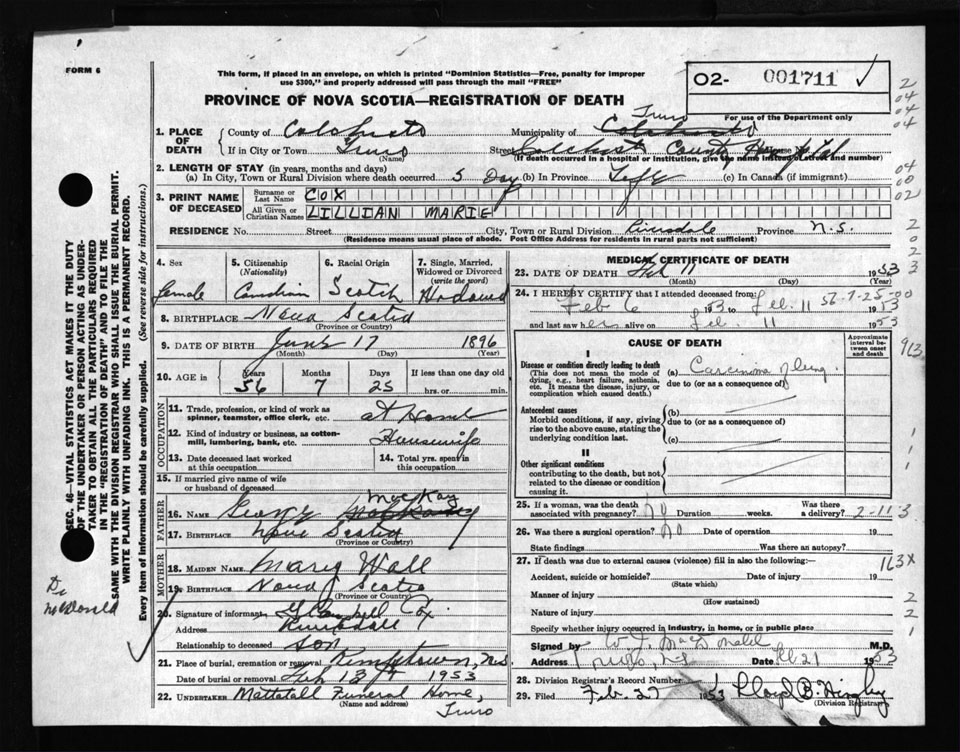 FORM 6
This form, if placed in an envelope, on which is printed "Dominion Statistics—Free, penalty for improper
use $300," and properly addressed will pass through the mail "FREE"
O2- 001711
For use of the Department only
PROVINCE OF NOVA SCOTIA—REGISTRATION OF DEATH
1. PLACE OF DEATH
County of Colchester Municipality of Truro
If in City or Town Truro Street Colchester County
(Name) (If death occurred in a hospital or institution, give the name instead of street and number)
2. LENGTH OF STAY (in years, months and days)
(a) In City, Town or Rural Division where death occurred 5 Day (b) In Province Life (c) In Canada (if immigrant)
3. PRINT NAME OF DECEASED
Surname or Last Name COX
All Given or Christian Names LILLIAN MARIE
RESIDENCE No. Street City, Town or Rural Division Riversdale Province N.S.
(Residence means usual place of abode. Post Office Address for residents in rural parts not sufficient)
4. Sex
female
5. Citizenship
(Nationality)
Canadian
6. Racial Origin
Scotch
7. Single, Married, Widowed or Divorced
(write the word)
Widowed
8. BIRTHPLACE Nova Scotia
(Province or Country)
9. DATE OF BIRTH June 17 1896
(Month) (Day) (Year)
10. AGE in Years Months Days If less than one day old
56 7 25 hrs. or min.
OCCUPATION
11. Trade, profession, or kind of work as
spinner, teamster, office clerk, etc. at Home
12. Kind of industry or business, as cotton-
mill, lumbering, bank, etc. Housewife
13. Date deceased last worked
at this occupation
14. Total yrs. spent in
this occupation
15. If married give name of wife
or husband of deceased
FATHER
16. NAME George MacKay
17. BIRTHPLACE Nova Scotia
(Province or Country)
MOTHER
18. MAIDEN NAME Mary Wall
19. BIRTHPLACE Nova Scotia
(Province or Country)
20. Signature of informant G Campbell Cox
Address Riversdale
Relationship to deceased son
21. Place of burial, cremation or removal Kemptown, N.S.
Date of burial or removal Feb 13 1953
22. UNDERTAKER Mattatall Funeral Home,
(Name and address) Truro
MEDICAL CERTIFICATE OF DEATH
23. DATE OF DEATH Feb 11 1953
(Month) (Day) (Year)
24. I HEREBY CERTIFY that I attended deceased from:
Feb 6 1953 to Feb. 11 1953
56-7-25-00
and last saw her alive on Feb. 11 1953
CAUSE OF DEATH
Approximate interval between onset and death
I
Disease or condition directly leading to death
(This does not mean the mode of dying, e.g., heart failure, asthenia, etc. It means the disease, injury, or complication which caused death.)
(a) Carcinoma of lung.
due to (or as a consequence of)
Antecedent causes
Morbid conditions, if any, giving rise to the above cause, stating the underlying condition last.
(b)
due to (or as a consequence of)
(c)
II
Other significant conditions
contributing to the death, but not related to the disease or condition causing it.
25. If a woman, was the death
associated with pregnancy? No Duration weeks. Was there
a delivery?
2-11 3
26. Was there a surgical operation? No Date of operation 19
State findings Was there an autopsy?
27. If death was due to external causes (violence) fill in also the following:
Accident, suicide or homicide? Date of injury 19
(State which)
Manner of injury
(How sustained)
Nature of injury
Specify whether injury occurred in industry, in home, or in public place
Signed by W. J. MacDonald M.D.
Address Truro, N.S. Date Feb 21 1953
28. Division Registrar's Record Number
29. Filed Feb. 27 1953 Lloyd B.
(Division Registrar)
SEC. 46—VITAL STATISTICS ACT MAKES IT THE DUTY
OF THE UNDERTAKER OR PERSON ACTING AS UNDER-
TAKER TO OBTAIN ALL THE PARTICULARS REQUIRED
IN THE "REGISTRATION OF DEATH" AND TO FILE THE
SAME WITH THE DIVISION REGISTRAR WHO SHALL ISSUE THE BURIAL PERMIT.
WRITE PLAINLY WITH UNFADING INK. THIS IS A PERMANENT RECORD.
Every item of information should be carefully supplied. (See reverse side for instructions.)
Dr
McDonald
2
04
04
04
04
00
02
2
0
2
3
963
1
1
1
163X
2
2
1